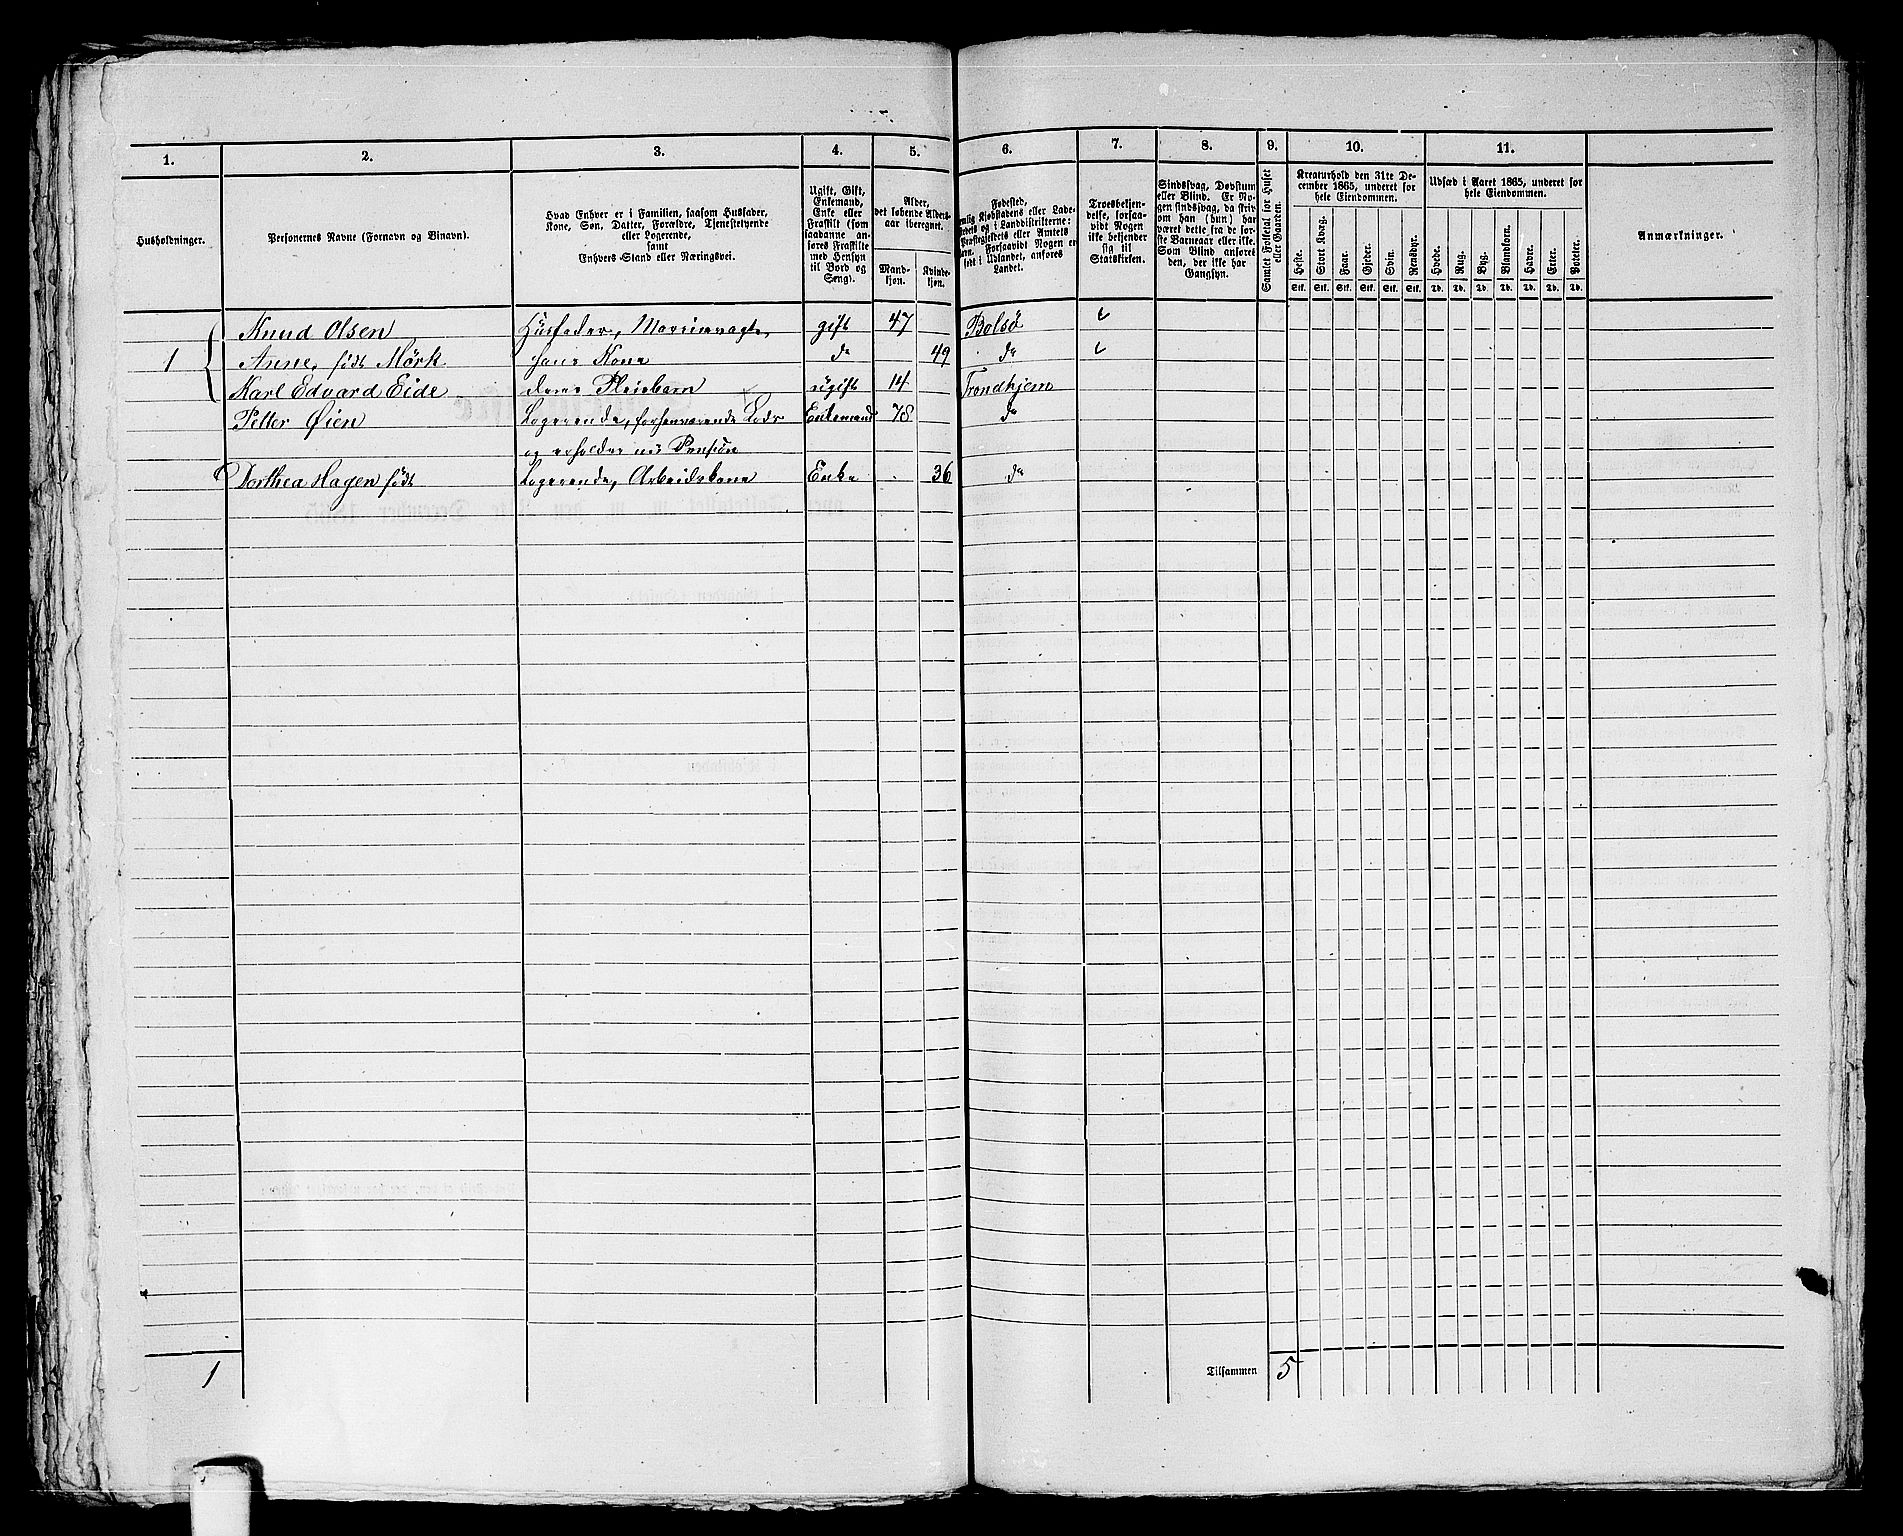 1. 2. 3. 4. 5. 6. 7. 8. 9. 10. 11.
Husholdninger.
Personernes Navne (Fornavn og Binavn).
Hvad Enhver er i Familien, saasom Husfader,
Kone, Søn, Datter, Forældre, Tjenestetyende
eller Logerende,
samt
Enhvers Stand eller Næringsvei.
Ugift, Gift,
Enkemand,
Enke eller
Fraskilt (som
saadanne an-
føres Fraskilte
med Hensyn
til Bord og
Seng).
Alder,
det løbende Alders-
aar iberegnet.
Mand-
kjøn.
Kvinde-
kjøn.
Fødested,
Kjøbstadens eller Lade-
og i Landdistrikterne:
Præstegjeldets eller Amtets
Forsaavidt Nogen er
født i Udlandet, anføres
Landet.
Troesbekjen-
delse, forsaa-
vidt Nogen
ikke bekjender
sig til
Statskirken.
Sindssvag, Døvstum
eller Blind. Er No-
gen sindssvag, da skriv
om han (hun) har
været dette fra de før-
ste Barneaar eller ikke.
Som Blind anføres
den, der ikke har
Gangsyn.
Samlet Folketal for Huset
eller Gaarden.
Kreaturhold den 31te De-
cember 1865, underet for
hele Eiendommen.
Heste. Stort Kvæg. Faar. Gjeder. Svin. Rensdyr.
Stk. Stk. Stk. Stk. Stk. Stk.
Udsæd i Aaret 1865, underet for
hele Eiendommen.
Hvede. Rug. Byg. Blandkorn. Havre. Erter. Poteter.
Td. Td. Td. Td. Td. Td. Td.
Anmærkninger.
Knud Olsen Husfader, gift 47 Bolsø
1 Anne, født Mørk hans Kone do 49 do
Karl Edvard Eide deres Pleiebarn ugift 14 Trondhjem
Petter Øien Logerende, forhenværende Lods Enkemand 78 do
og erholder nu Pension
Dorthea Hagen født Logerende, Arbeidskone Enke 36 do
1 Tilsammen 5